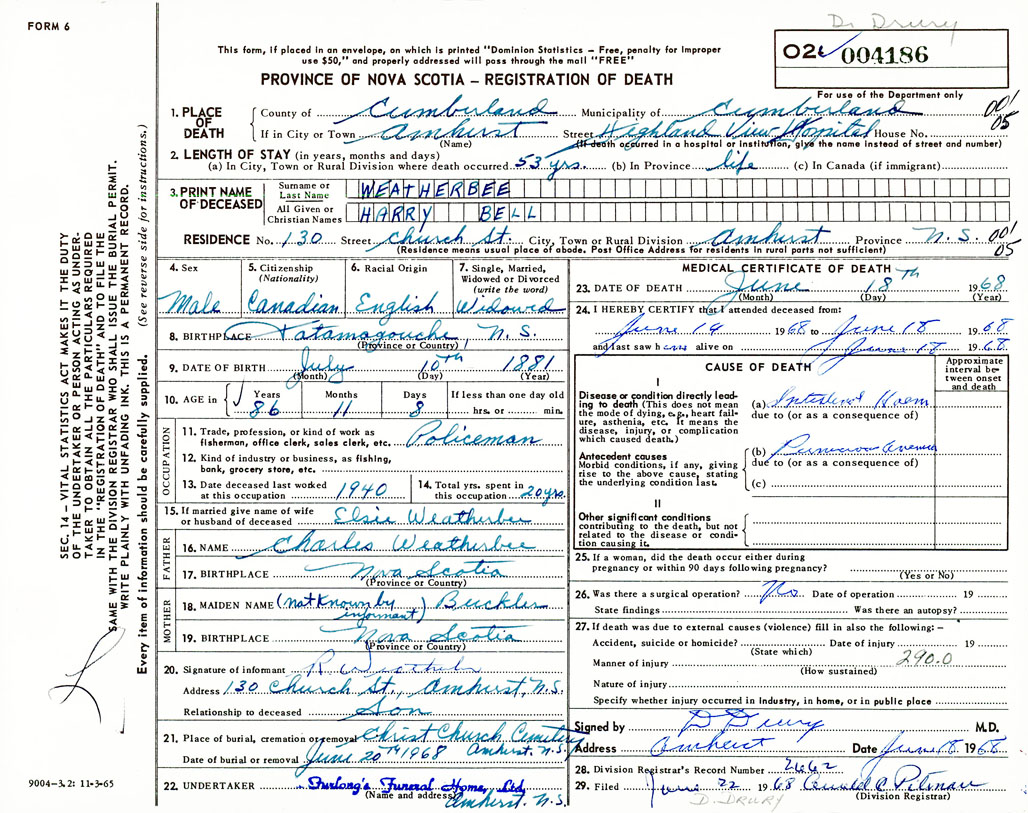 Dr Drury
FORM 6
026 004186
This form, if placed in an envelope, on which is printed "Dominion Statistics – Free, penalty for improper
use $50," and properly addressed will pass through the mail "FREE"
PROVINCE OF NOVA SCOTIA – REGISTRATION OF DEATH
For use of the Department only
001
05
1. PLACE OF DEATH
County of Cumberland Municipality of Cumberland
If in City or Town Amherst Street Highland View Hospital House No.
(Name) (If death occurred in a hospital or institution, give the name instead of street and number)
2. LENGTH OF STAY (in years, months and days)
(a) In City, Town or Rural Division where death occurred 53 yrs. (b) In Province life (c) In Canada (if immigrant)
3. PRINT NAME OF DECEASED
Surname or Last Name WEATHERBEE
All Given or Christian Names HARRY BELL
RESIDENCE No. 130 Street Church St. City, Town or Rural Division Amherst Province N.S. 001
05
(Residence means usual place of abode. Post Office Address for residents in rural parts not sufficient)
4. Sex
Male
5. Citizenship
(Nationality)
Canadian
6. Racial Origin
English
7. Single, Married,
Widowed or Divorced
(write the word)
Widowed
8. BIRTHPLACE Tatamagouche N.S.
(Province or Country)
9. DATE OF BIRTH July 10th 1881
(Month) (Day) (Year)
10. AGE in
Years Months Days If less than one day old
86 11 8 hrs. or min.
OCCUPATION
11. Trade, profession, or kind of work as
fisherman, office clerk, sales clerk, etc. Policeman
12. Kind of industry or business, as fishing,
bank, grocery store, etc.
13. Date deceased last worked
at this occupation 1940
14. Total yrs. spent in
this occupation 20 yrs.
15. If married give name of wife
or husband of deceased Elsie Weatherbee
FATHER
16. NAME Charles Weatherbee
17. BIRTHPLACE Nova Scotia
(Province or Country)
MOTHER
18. MAIDEN NAME (not known by informant) Buckler
19. BIRTHPLACE Nova Scotia
(Province or Country)
20. Signature of informant R
Address 130 Church St., Amherst, N.S.
Relationship to deceased Son
21. Place of burial, cremation or removal Christ Church Cemetery
Amherst, N.S.
Date of burial or removal June 20th 1968
22. UNDERTAKER Furlong's Funeral Home, Ltd.
(Name and address) Amherst. N.S.
MEDICAL CERTIFICATE OF DEATH
23. DATE OF DEATH June 18th 1968
(Month) (Day) (Year)
24. I HEREBY CERTIFY that I attended deceased from:
June 14 1968 to June 18 1968
and last saw h alive on June 18 1968
CAUSE OF DEATH
Approximate
interval be-
tween onset
and death
I
Disease or condition directly lead-
ing to death (This does not mean
the mode of dying, e.g., heart fail-
ure, asthenia, etc. It means the
disease, injury, or complication
which caused death.)
(a)
due to (or as a consequence of)
Antecedent causes
Morbid conditions, if any, giving
rise to the above cause, stating
the underlying condition last.
(b)
due to (or as a consequence of)
(c)
II
Other significant conditions
contributing to the death, but not
related to the disease or condi-
tion causing it.
25. If a woman, did the death occur either during
pregnancy or within 90 days following pregnancy?
(Yes or No)
26. Was there a surgical operation? No Date of operation 19
State findings Was there an autopsy?
27. If death was due to external causes (violence) fill in also the following: –
Accident, suicide or homicide? Date of injury 19
(State which)
Manner of injury 290.0
(How sustained)
Nature of injury
Specify whether injury occurred in industry, in home, or in public place
Signed by D Drury M.D.
Address Amherst Date June 18 1968
28. Division Registrar's Record Number 2662
29. Filed June 22 1968
(Division Registrar)
D. DRURY
SEC. 14 – VITAL STATISTICS ACT MAKES IT THE DUTY
OF THE UNDERTAKER OR PERSON ACTING AS UNDER-
TAKER TO OBTAIN ALL THE PARTICULARS REQUIRED
IN THE "REGISTRATION OF DEATH" AND TO FILE THE
SAME WITH THE DIVISION REGISTRAR WHO SHALL ISSUE THE BURIAL PERMIT.
WRITE PLAINLY WITH UNFADING INK. THIS IS A PERMANENT RECORD.
Every item of information should be carefully supplied. (See reverse side for instructions.)
9004-3.2: 11-3-65